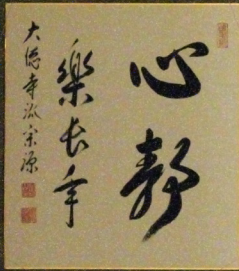 心静
樂長年
大徳寺派宗源